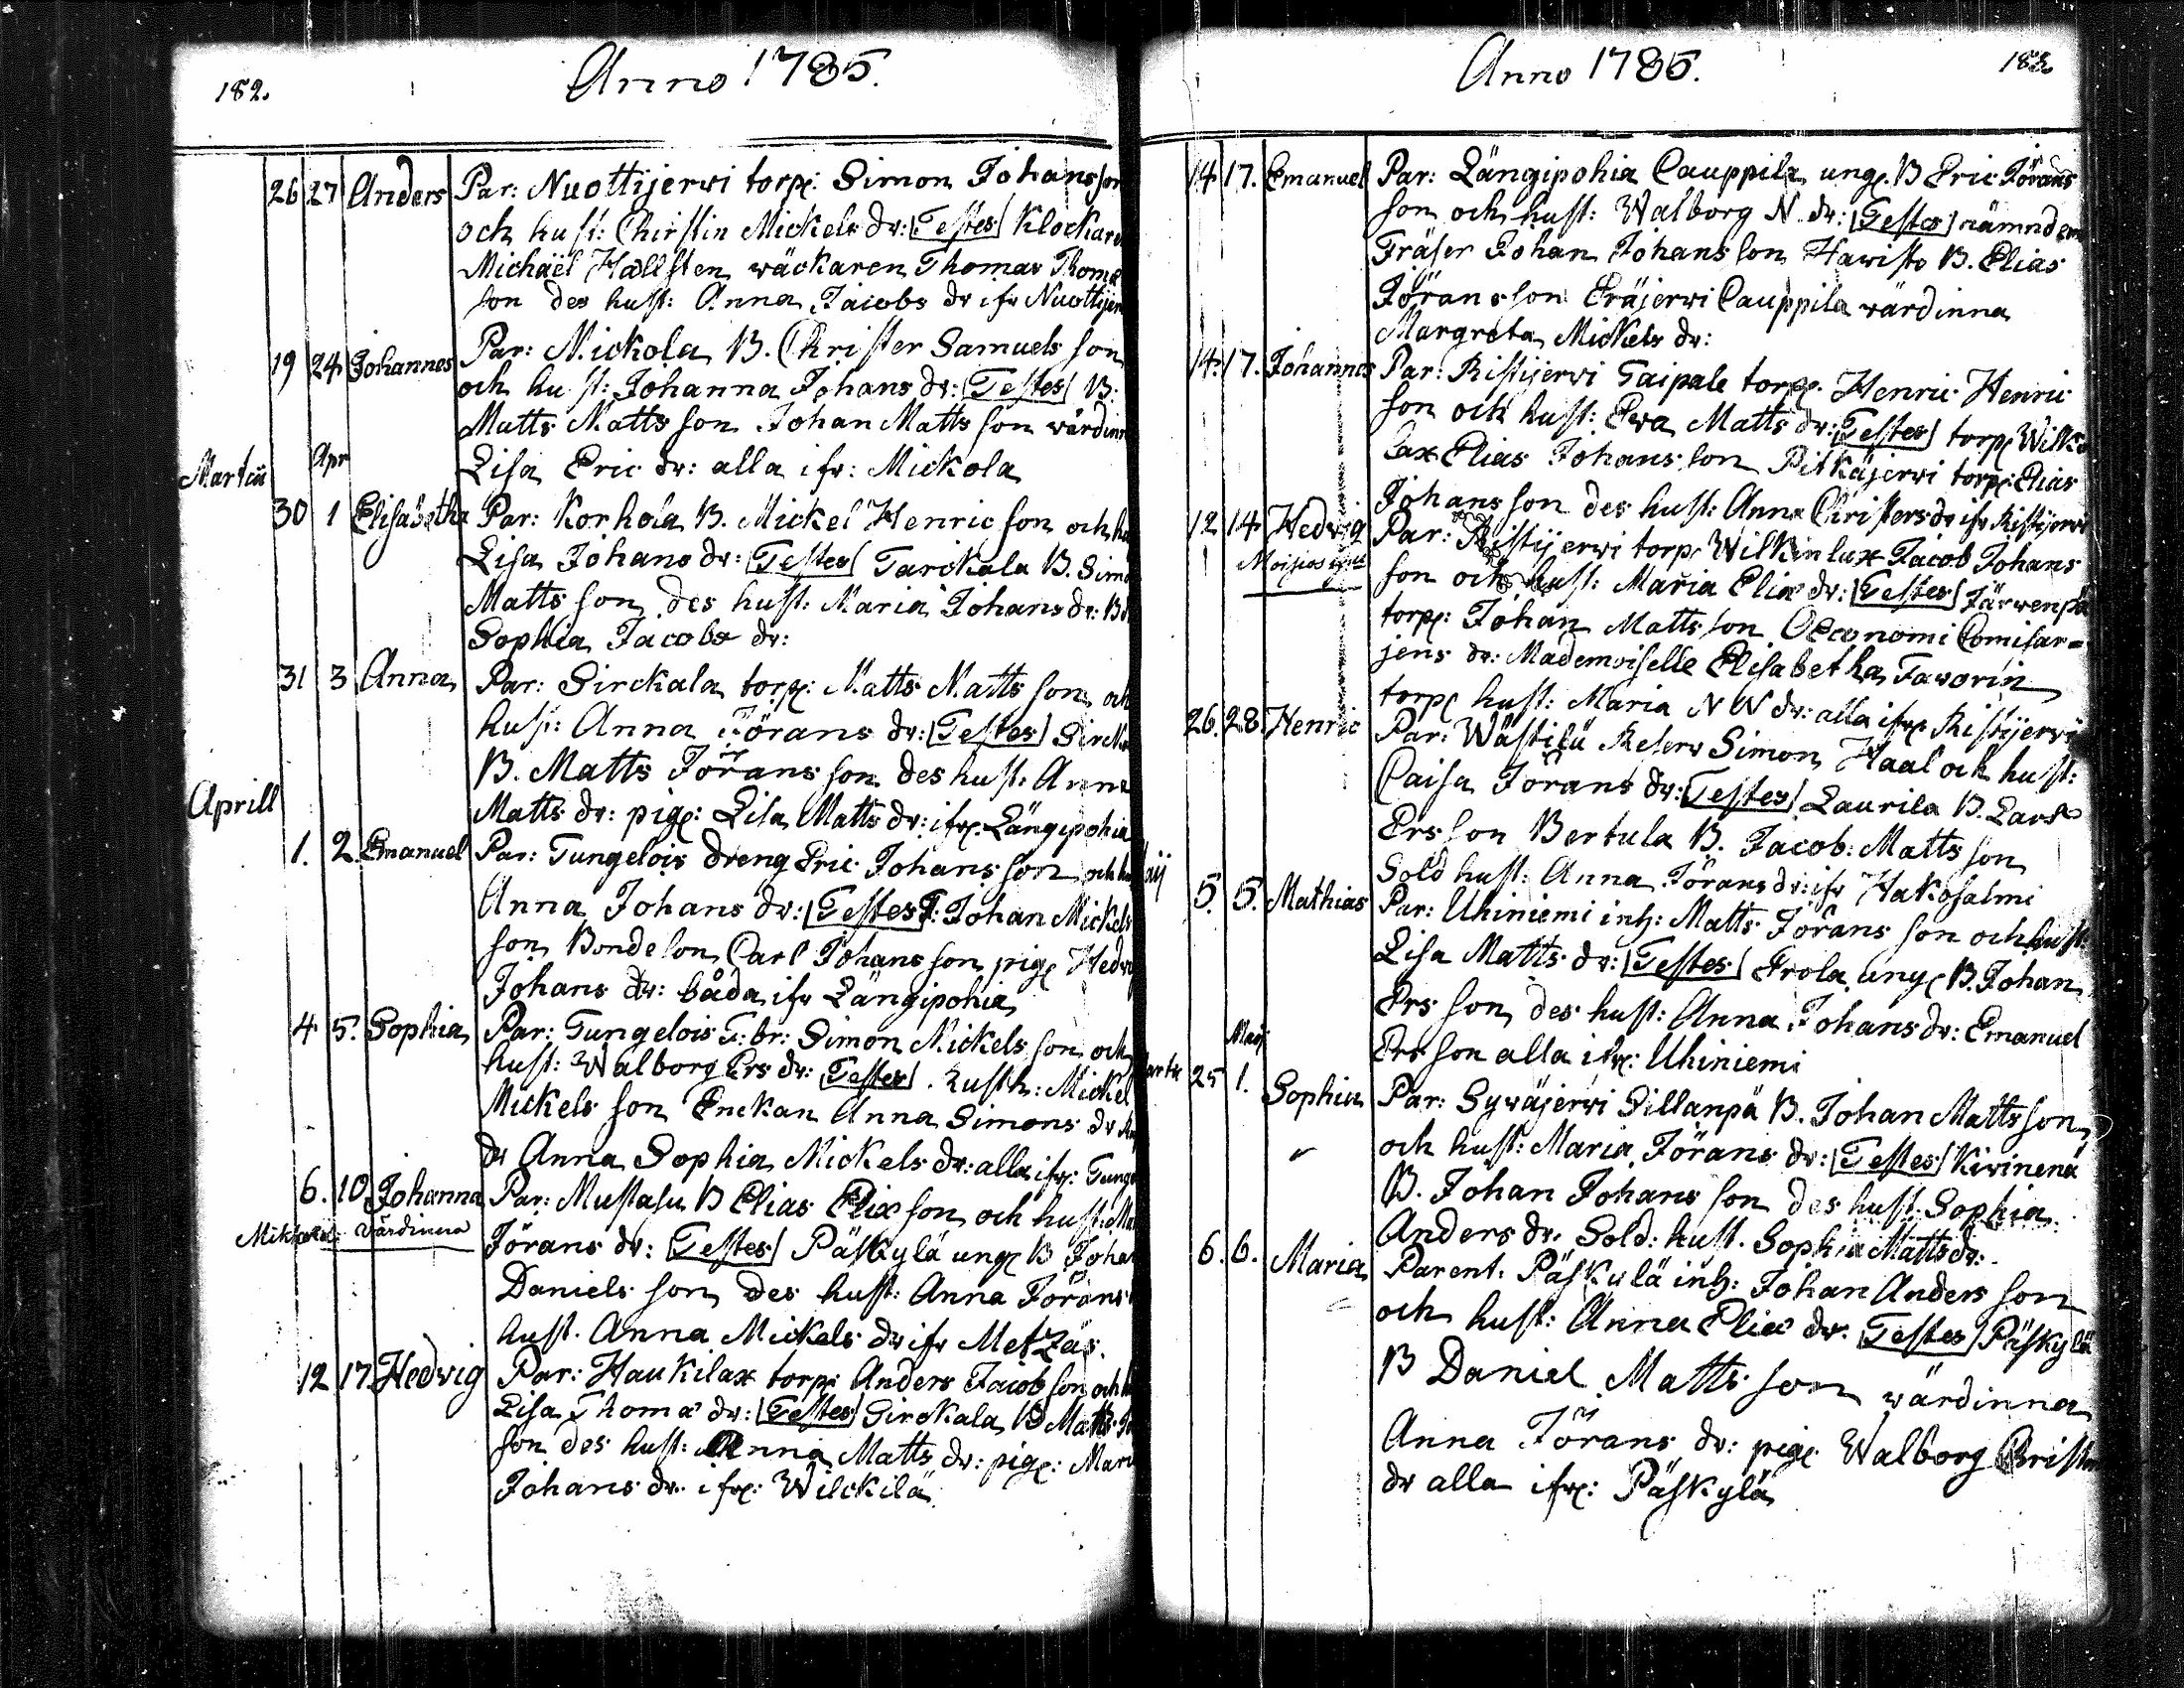 182.
Anno 1785.
26 27 Anders Par: Nuottijerwi torp: Simon Johansson
och hust: Christin Mickels dr: Testes Klockaren
Michaël Hællsten wäckaren Thomas Thomæ
son des hust: Anna Jacobs dr ifr Nuottijer
19 24 Johannes Par: Mickola B. Christer Samuels son
och hust: Johanna Johans dr: Testes B:
Matts Matts son Johan Matts son wärdinn
Martii Apr Lisa Eric dr: alla ifr: Mickola
30 1 Elisabetha Par: Korhola B. Mickel Henric son och hu
Lisa Johans dr: Testes Tarckala B. Simo
Matts son des hust: Maria Johans dr: B
Sophia Jacobs dr:
31 3 Anna Par: Sirckala torp: Matts Matts son och
hust: Anna Jörans dr: Testes Sircka
B. Matts Jörans son des hust: Anna
Aprill Matts dr: pig: Lisa Matts dr: ifr: Längipohia
1. 2. Emanuel Par: Tungelois dreng Eric Johans son och hu
Anna Johans dr: Testes T: Johan Mickels
son Bondeson Carl Johans son pig Hedw
Johans dr: båda ifr Längipohia
4 5. Sophia Par: Tungelois T: br: Simon Mickels son och
hust: Walborg Ers dr: Testes Rusth: Mickel
Mickels son Enckan Anna Simons dr
dr Anna Sophia Mickels dr: alla ifr: Tunge
6. 10 Johanna Par: Mustasu B Elias Eliæ son och hust: Ma
Mikkola wärdinna Jörans dr: Testes Päskylä ung B Johan
Daniels son des hust: Anna Jörans
hust. Anna Mickels dr ifr Metzäs.
12 17. Hedwig Par: Haukilax torp: Anders Jacob son och h
Lisa Thomæ dr: Testes Sirckala B Matts
son des hust: Anna Matts dr: pig: Mari
Johans dr. ifr: Wilckilä
Anno 1785. 183.
14 17. Emanuel Par: Längipohia Cauppila ung. B Eric Jörans
son och hust: Walborg N dr: Testes nämndem
Fräser Johan Johans son Hawisto B. Elias
Jörans son Eräjerwi Cauppila wärdinna
Margreta Mickels dr:
14. 17. Johannes Par: Ristijerwi Taipale torp. Henric Henric
son och hust: Ewa Matts dr: Testes torp Wilki
lax Elias Johans son Pitkäjerwi torp: Elias
Johans son des hust: Anna Christers dr ifr Ristijerwi
12 14 Hedwig Par: Ristijerwi torp. Wilkinlax Jacob Johans
son och hust: Maria Eliæ dr: Testes Järwenpä
torp: Johan Matts son Oeconomi Comisar=
jens dr: Mademoiselle Elisabetha Faworin
torp hust: Maria N N dr: alla ifr Ristijerwi
26. 28. Henric Par: Wästilä Reserv Simon Haal och hust:
Caisa Jörans dr: Testes Laurila B. Lars
Ers son Bertula B. Jacob: Matts son
Sold hust: Anna Jörans dr: ifr Hakosalmi
5. 5. Mathias Par: Uhiniemi inh: Matts Jörans son och hust:
Lisa Matts dr: Testes Frola ung B. Johan
Ers son des hust: Anna Johans dr: Emanuel
Maij Ers son alla ifr: Uhiniemi
25 1. Sophia Par: Sywäjerwi Sillanpä B. Johan Matts son
och hust: Maria Jörans dr: Testes Kivinenä
B. Johan Johans son des hust. Sophia
Anders dr. Sold: hust. Sophia Matts dr:
6. 6. Maria Parent. Päskylä inh: Johan Anders son
och hust: Anna Eliæ dr. Testes Päskylä
B Daniel Matts son wärdinna
Anna Jörans dr: pig Walborg Christer
dr alla ifr: Päskylä